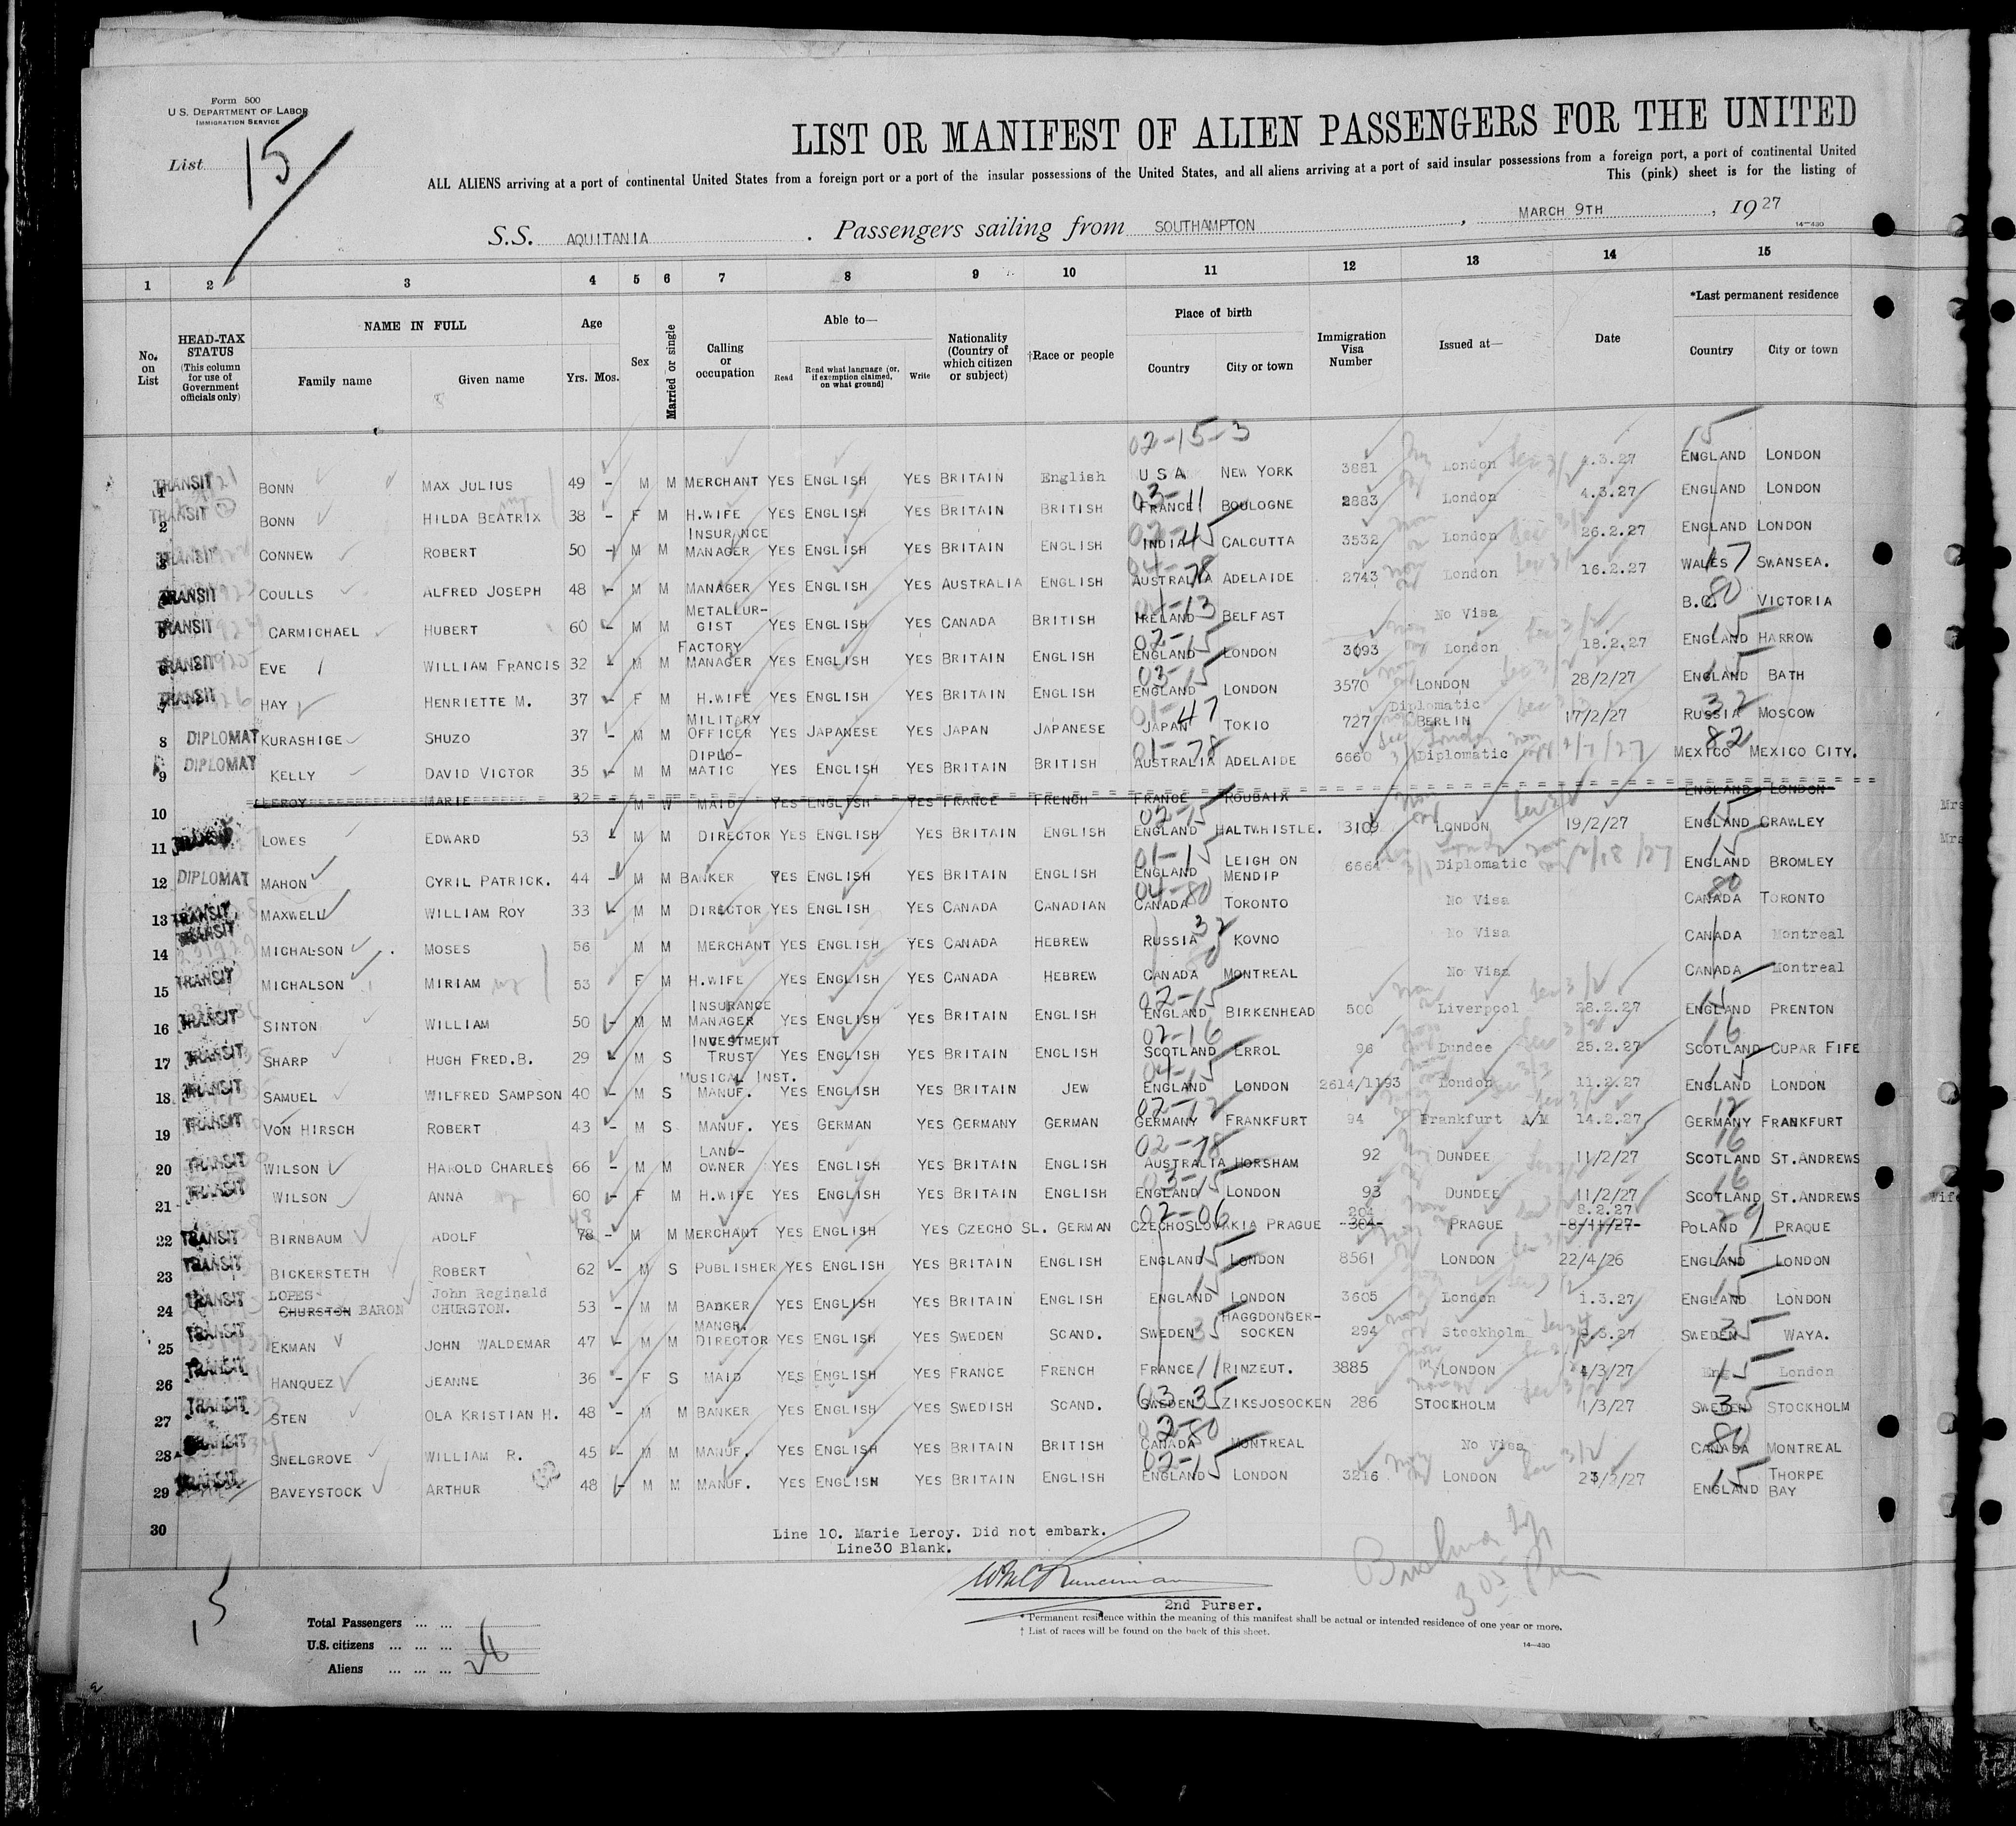 Form 500
U.S. DEPARTMENT OF LABOR
IMMIGRATION SERVICE
List 15
LIST OR MANIFEST OF ALIEN PASSENGERS FOR THE UNITED
ALL ALIENS arriving at a port of continental United States from a foreign port or a port of the insular possessions of the United States, and all aliens arriving at a port of said insular possessions from a foreign port, a port of continental United
This (pink) sheet is for the listing of
S.S. AQUITANIA . Passengers sailing from SOUTHAMPTON , MARCH 9TH , 1927
14-430
1 2 3 4 5 6 7 8 9 10 11 12 13 14 15
No. on List
HEAD-TAX STATUS (This column for use of Government officials only)
NAME IN FULL Family name Given name
Age Yrs. Mos.
Sex
Married or single
Calling or occupation
Able to— Read Read what language [or, if exemption claimed, on what ground] Write
Nationality (Country of which citizen or subject)
†Race or people
Place of birth Country City or town
Immigration Visa Number
Issued at—
Date
*Last permanent residence Country City or town
02-15-3 15
1 TRANSIT BONN MAX JULIUS 49 - M M MERCHANT YES ENGLISH YES BRITAIN English U S A NEW YORK 3881 London 4.3.27 ENGLAND LONDON
2 TRANSIT BONN HILDA BEATRIX 38 - F M H.WIFE YES ENGLISH YES BRITAIN BRITISH FRANCE BOULOGNE 2883 London 4.3.27 ENGLAND LONDON
3 TRANSIT CONNEW ROBERT 50 - M M INSURANCE MANAGER YES ENGLISH YES BRITAIN ENGLISH INDIA CALCUTTA 3532 London 26.2.27 ENGLAND LONDON
4 TRANSIT COULLS ALFRED JOSEPH 48 - M M MANAGER YES ENGLISH YES AUSTRALIA ENGLISH AUSTRALIA ADELAIDE 2743 London 16.2.27 WALES SWANSEA.
5 TRANSIT CARMICHAEL HUBERT 60 - M M METALLURGIST YES ENGLISH YES CANADA BRITISH IRELAND BELFAST No Visa B.C. VICTORIA
6 TRANSIT EVE WILLIAM FRANCIS 32 - M M FACTORY MANAGER YES ENGLISH YES BRITAIN ENGLISH ENGLAND LONDON 3093 London 18.2.27 ENGLAND HARROW
7 TRANSIT HAY HENRIETTE M. 37 - F M H.WIFE YES ENGLISH YES BRITAIN ENGLISH ENGLAND LONDON 3570 LONDON 28/2/27 ENGLAND BATH
8 DIPLOMAT KURASHIGE SHUZO 37 - M M MILITARY OFFICER YES JAPANESE YES JAPAN JAPANESE JAPAN TOKIO 727 Diplomatic BERLIN 17/2/27 RUSSIA MOSCOW
9 DIPLOMAT KELLY DAVID VICTOR 35 - M M DIPLO-MATIC YES ENGLISH YES BRITAIN BRITISH AUSTRALIA ADELAIDE 6660 Diplomatic MEXICO MEXICO CITY.
10 LEROY MARIE 32 - M W MAID YES ENGLISH YES FRANCE FRENCH FRANCE ROUBAIX ENGLAND LONDON
11 TRANSIT LOWES EDWARD 53 M M DIRECTOR YES ENGLISH YES BRITAIN ENGLISH ENGLAND HALTWHISTLE. 3109 LONDON 19/2/27 ENGLAND CRAWLEY
12 DIPLOMAT MAHON CYRIL PATRICK. 44 - M M BANKER YES ENGLISH YES BRITAIN ENGLISH ENGLAND LEIGH ON MENDIP 6664 Diplomatic ENGLAND BROMLEY
13 TRANSIT MAXWELL WILLIAM ROY 33 - M M DIRECTOR YES ENGLISH YES CANADA CANADIAN CANADA TORONTO No Visa CANADA TORONTO
14 TRANSIT MICHALSON MOSES 56 M M MERCHANT YES ENGLISH YES CANADA HEBREW RUSSIA KOVNO No Visa CANADA Montreal
15 TRANSIT MICHALSON MIRIAM 53 F M H.WIFE YES ENGLISH YES CANADA HEBREW CANADA MONTREAL No Visa CANADA Montreal
16 TRANSIT SINTON WILLIAM 50 - M M INSURANCE MANAGER YES ENGLISH YES BRITAIN ENGLISH ENGLAND BIRKENHEAD 500 Liverpool 28.2.27 ENGLAND PRENTON
17 TRANSIT SHARP HUGH FRED.B. 29 M S INVESTMENT TRUST YES ENGLISH YES BRITAIN ENGLISH SCOTLAND ERROL 96 Dundee 25.2.27 SCOTLAND CUPAR FIFE
18 TRANSIT SAMUEL WILFRED SAMPSON 40 - M S MUSICAL INST. MANUF. YES ENGLISH YES BRITAIN JEW ENGLAND LONDON 2614/1193 London 11.2.27 ENGLAND LONDON
19 TRANSIT VON HIRSCH ROBERT 43 - M S MANUF. YES GERMAN YES GERMANY GERMAN GERMANY FRANKFURT 94 Frankfurt A/M 14.2.27 GERMANY FRANKFURT
20 TRANSIT WILSON HAROLD CHARLES 66 - M M LAND-OWNER YES ENGLISH YES BRITAIN ENGLISH AUSTRALIA HORSHAM 92 DUNDEE 11/2/27 SCOTLAND ST.ANDREWS
21 TRANSIT WILSON ANNA 60 - F M H.WIFE YES ENGLISH YES BRITAIN ENGLISH ENGLAND LONDON 93 DUNDEE 11/2/27 SCOTLAND ST.ANDREWS
22 TRANSIT BIRNBAUM ADOLF 78 48 - M M MERCHANT YES ENGLISH YES CZECHO SL. GERMAN CZECHOSLOVAKIA PRAGUE 204 304 PRAGUE 8.2.27 8/11/27 POLAND PRAQUE
23 TRANSIT BICKERSTETH ROBERT 62 - M S PUBLISHER YES ENGLISH YES BRITAIN ENGLISH ENGLAND LONDON 8561 LONDON 22/4/26 ENGLAND LONDON
24 TRANSIT LOPES CHURSTON BARON John Reginald CHURSTON. 53 - M M BANKER YES ENGLISH YES BRITAIN ENGLISH ENGLAND LONDON 3605 London 1.3.27 ENGLAND LONDON
25 TRANSIT EKMAN JOHN WALDEMAR 47 - M M MANGR. DIRECTOR YES ENGLISH YES SWEDEN SCAND. SWEDEN HAGGDONGER-SOCKEN 294 Stockholm 3.27 SWEDEN WAYA.
26 TRANSIT HANQUEZ JEANNE 36 - F S MAID YES ENGLISH YES FRANCE FRENCH FRANCE RINZEUT. 3885 LONDON 4/3/27 Eng London
27 TRANSIT STEN OLA KRISTIAN H. 48 - M M BANKER YES ENGLISH YES SWEDISH SCAND. SWEDEN ZIKSJOSOCKEN 286 STOCKHOLM 1/3/27 SWEDEN STOCKHOLM
28 TRANSIT SNELGROVE WILLIAM R. 45 - M M MANUF. YES ENGLISH YES BRITAIN BRITISH CANADA MONTREAL No Visa CANADA MONTREAL
29 TRANSIT BAVEYSTOCK ARTHUR 48 - M M MANUF. YES ENGLISH YES BRITAIN ENGLISH ENGLAND LONDON 3216 LONDON 23/2/27 ENGLAND THORPE BAY
30
Line 10. Marie Leroy. Did not embark.
Line30 Blank.
2nd Purser.
15
Total Passengers
U.S. citizens
Aliens
* Permanent residence within the meaning of this manifest shall be actual or intended residence of one year or more.
† List of races will be found on the back of this sheet.
14-430